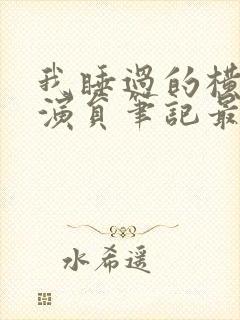 我睡過的橫
演員筆記最
水希遥